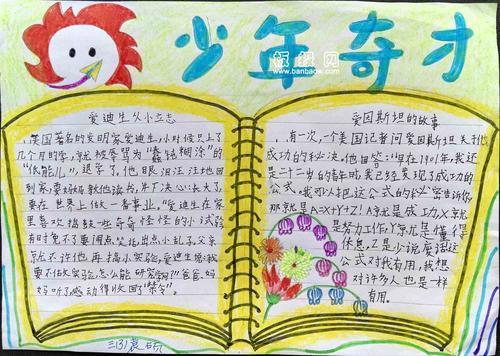 少年奇才
板报网
www.banbaow.com
爱迪生从小立志
美国著名的发明家爱迪生,小时候只上了
几个月的学,就被辱骂为“蠢钝糊涂”的
“低能儿”,退学了,他眼泪汪汪地回
到家,要妈妈教他读书,并下决心:长大了,
要在世界上做一番事业。”爱迪生在家
里喜欢搞鼓一些奇奇怪怪的小试验
有时免不了要闹点笑话,出点小乱子。父亲
就不许他再搞小实验,爱迪生急
要不做实验怎么能研究学问?”爸爸.妈
妈听了感动得收回了“禁令”。
爱因斯坦的故事
有一次,一个美国记者问爱因斯坦关于他
成功的秘决,他回答:“早在1901年,我还
是二十二岁的青年时,我已经发现了成功的
公式。我可以把这公式的秘密告诉你,
那就是A=X+Y+Z!A就是成功,X就
是努力工作,Y就是懂得
休息,Z是少说废话这
公式对我有用,我想
对许多人也是一样
有用。